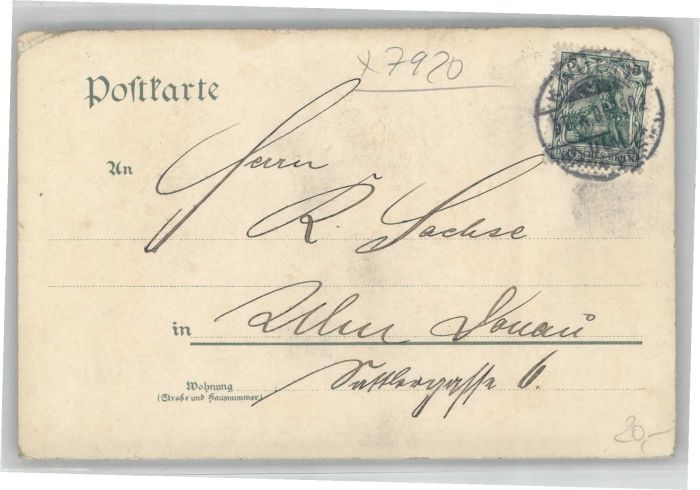 x7920
Postkarte
An Herrn
R. Sachse
in Ulm Donau
Wohnung
(Straße und Hausnummer)
Sattlergasse 6.
DEUTSCHES REICH
20,-